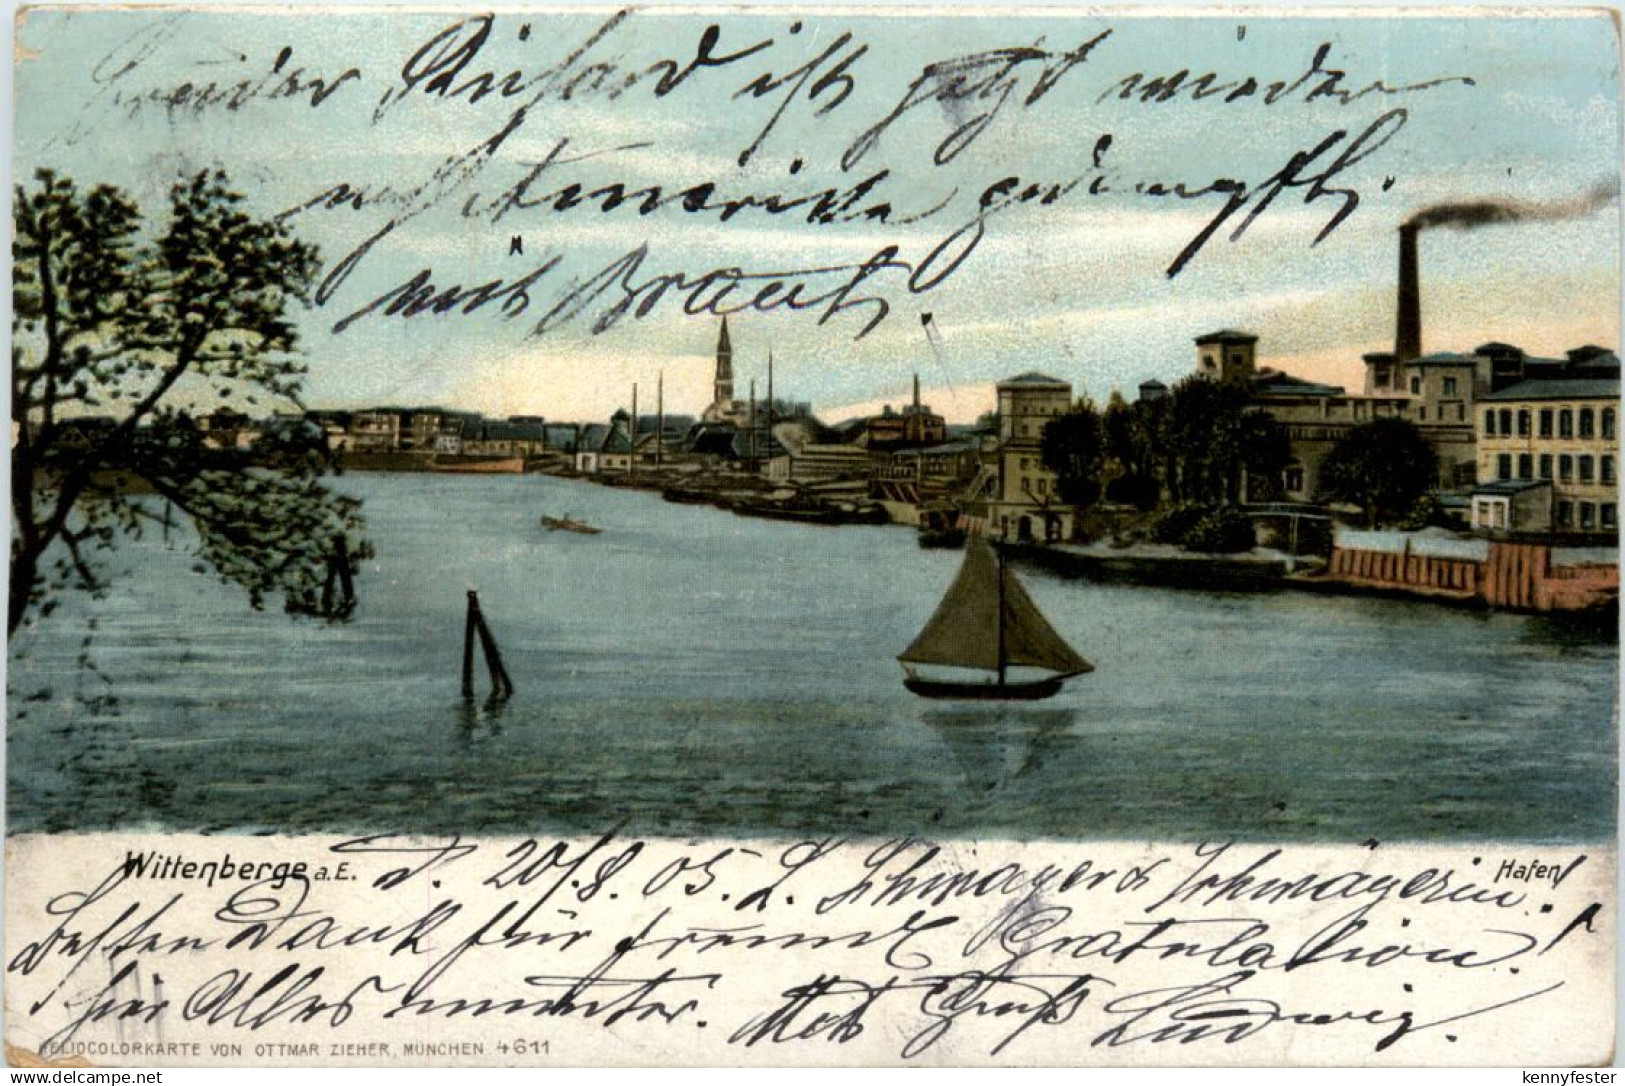 Bruder Richard ist jetzt wieder
nach Amerika gedampft,
mit Braut.
Wittenberge a.E.
Hafen
d. 20/8. 05. L. Schwager & Schwägerin!
Besten Dank für freundl Gratulation!
hier Alles munter. Mit Gruß Ludwig.
HELIOCOLORKARTE VON OTTMAR ZIEHER, MÜNCHEN 4611
delcampe.net
kennyfester